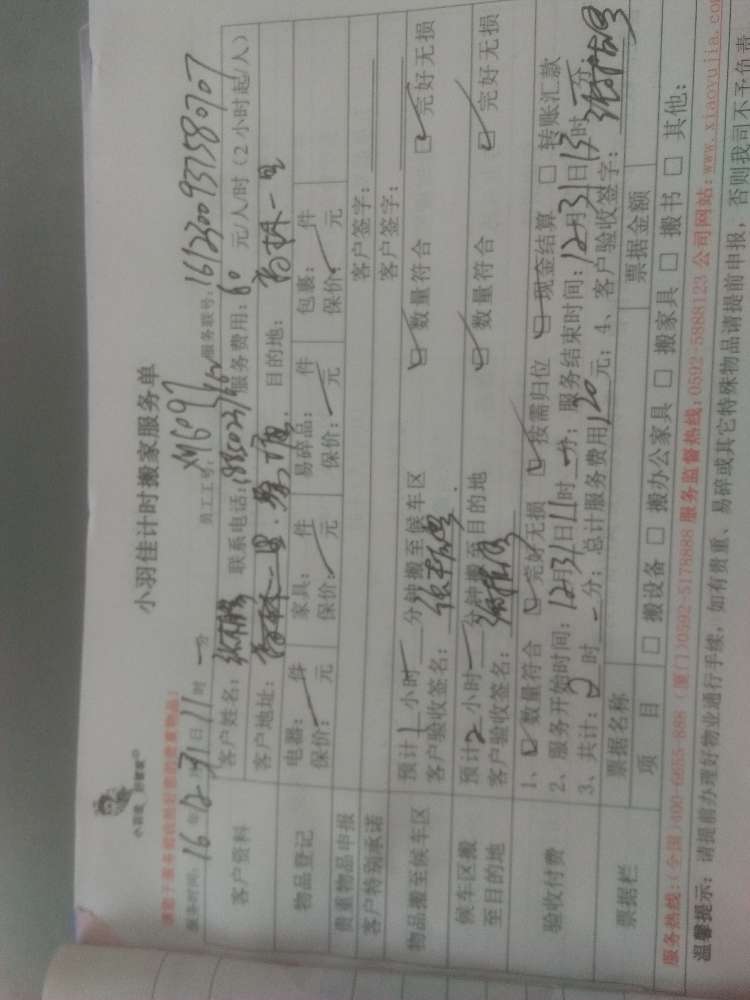 小羽佳计时搬家服务单
小羽佳 好管家
服务时间: 16年12月31日11时 一 分 员工工号: XM6097 服务联号: 16123009375807
客户资料
客户姓名: 联系电话: 服务费用: 60 元/人/时(2小时起/人)
客户地址: 目的地:
物品登记
电器: 件 家具: 件 易碎品: 件 包裹: 件
保价: 元 保价: 元 保价: 元 保价: 元
贵重物品申报 客户签字:
客户特别承诺 客户签字:
物品搬至候车区
预计 1 小时 一 分钟搬至候车区 数量符合 完好无损
客户验收签名:
候车区搬至目的地
预计 2 小时 一 分钟搬至目的地 数量符合 完好无损
客户验收签名:
验收付费
1、 数量符合 完好无损 按需归位 现金结算 □ 转账汇款
2、服务开始时间: 12月31日11时 一 分; 服务结束时间: 12月31日13时 一 分;
3、共计: 2 时 一 分; 总计服务费用 120 元; 4、客户验收签字:
票据栏
票据名称 票据金额
项 目 □ 搬设备 □ 搬办公家具 □ 搬家具 □ 搬书 □ 其他:
服务热线:(全国)400-6655-888 (厦门)0592-5178888 服务监督热线:0592-5888123 公司网站:www.xiaoyujia.co
温馨提示: 请提前办理好物业通行手续, 如有贵重、易碎或其它特殊物品请提前申报, 否则我司不予负责